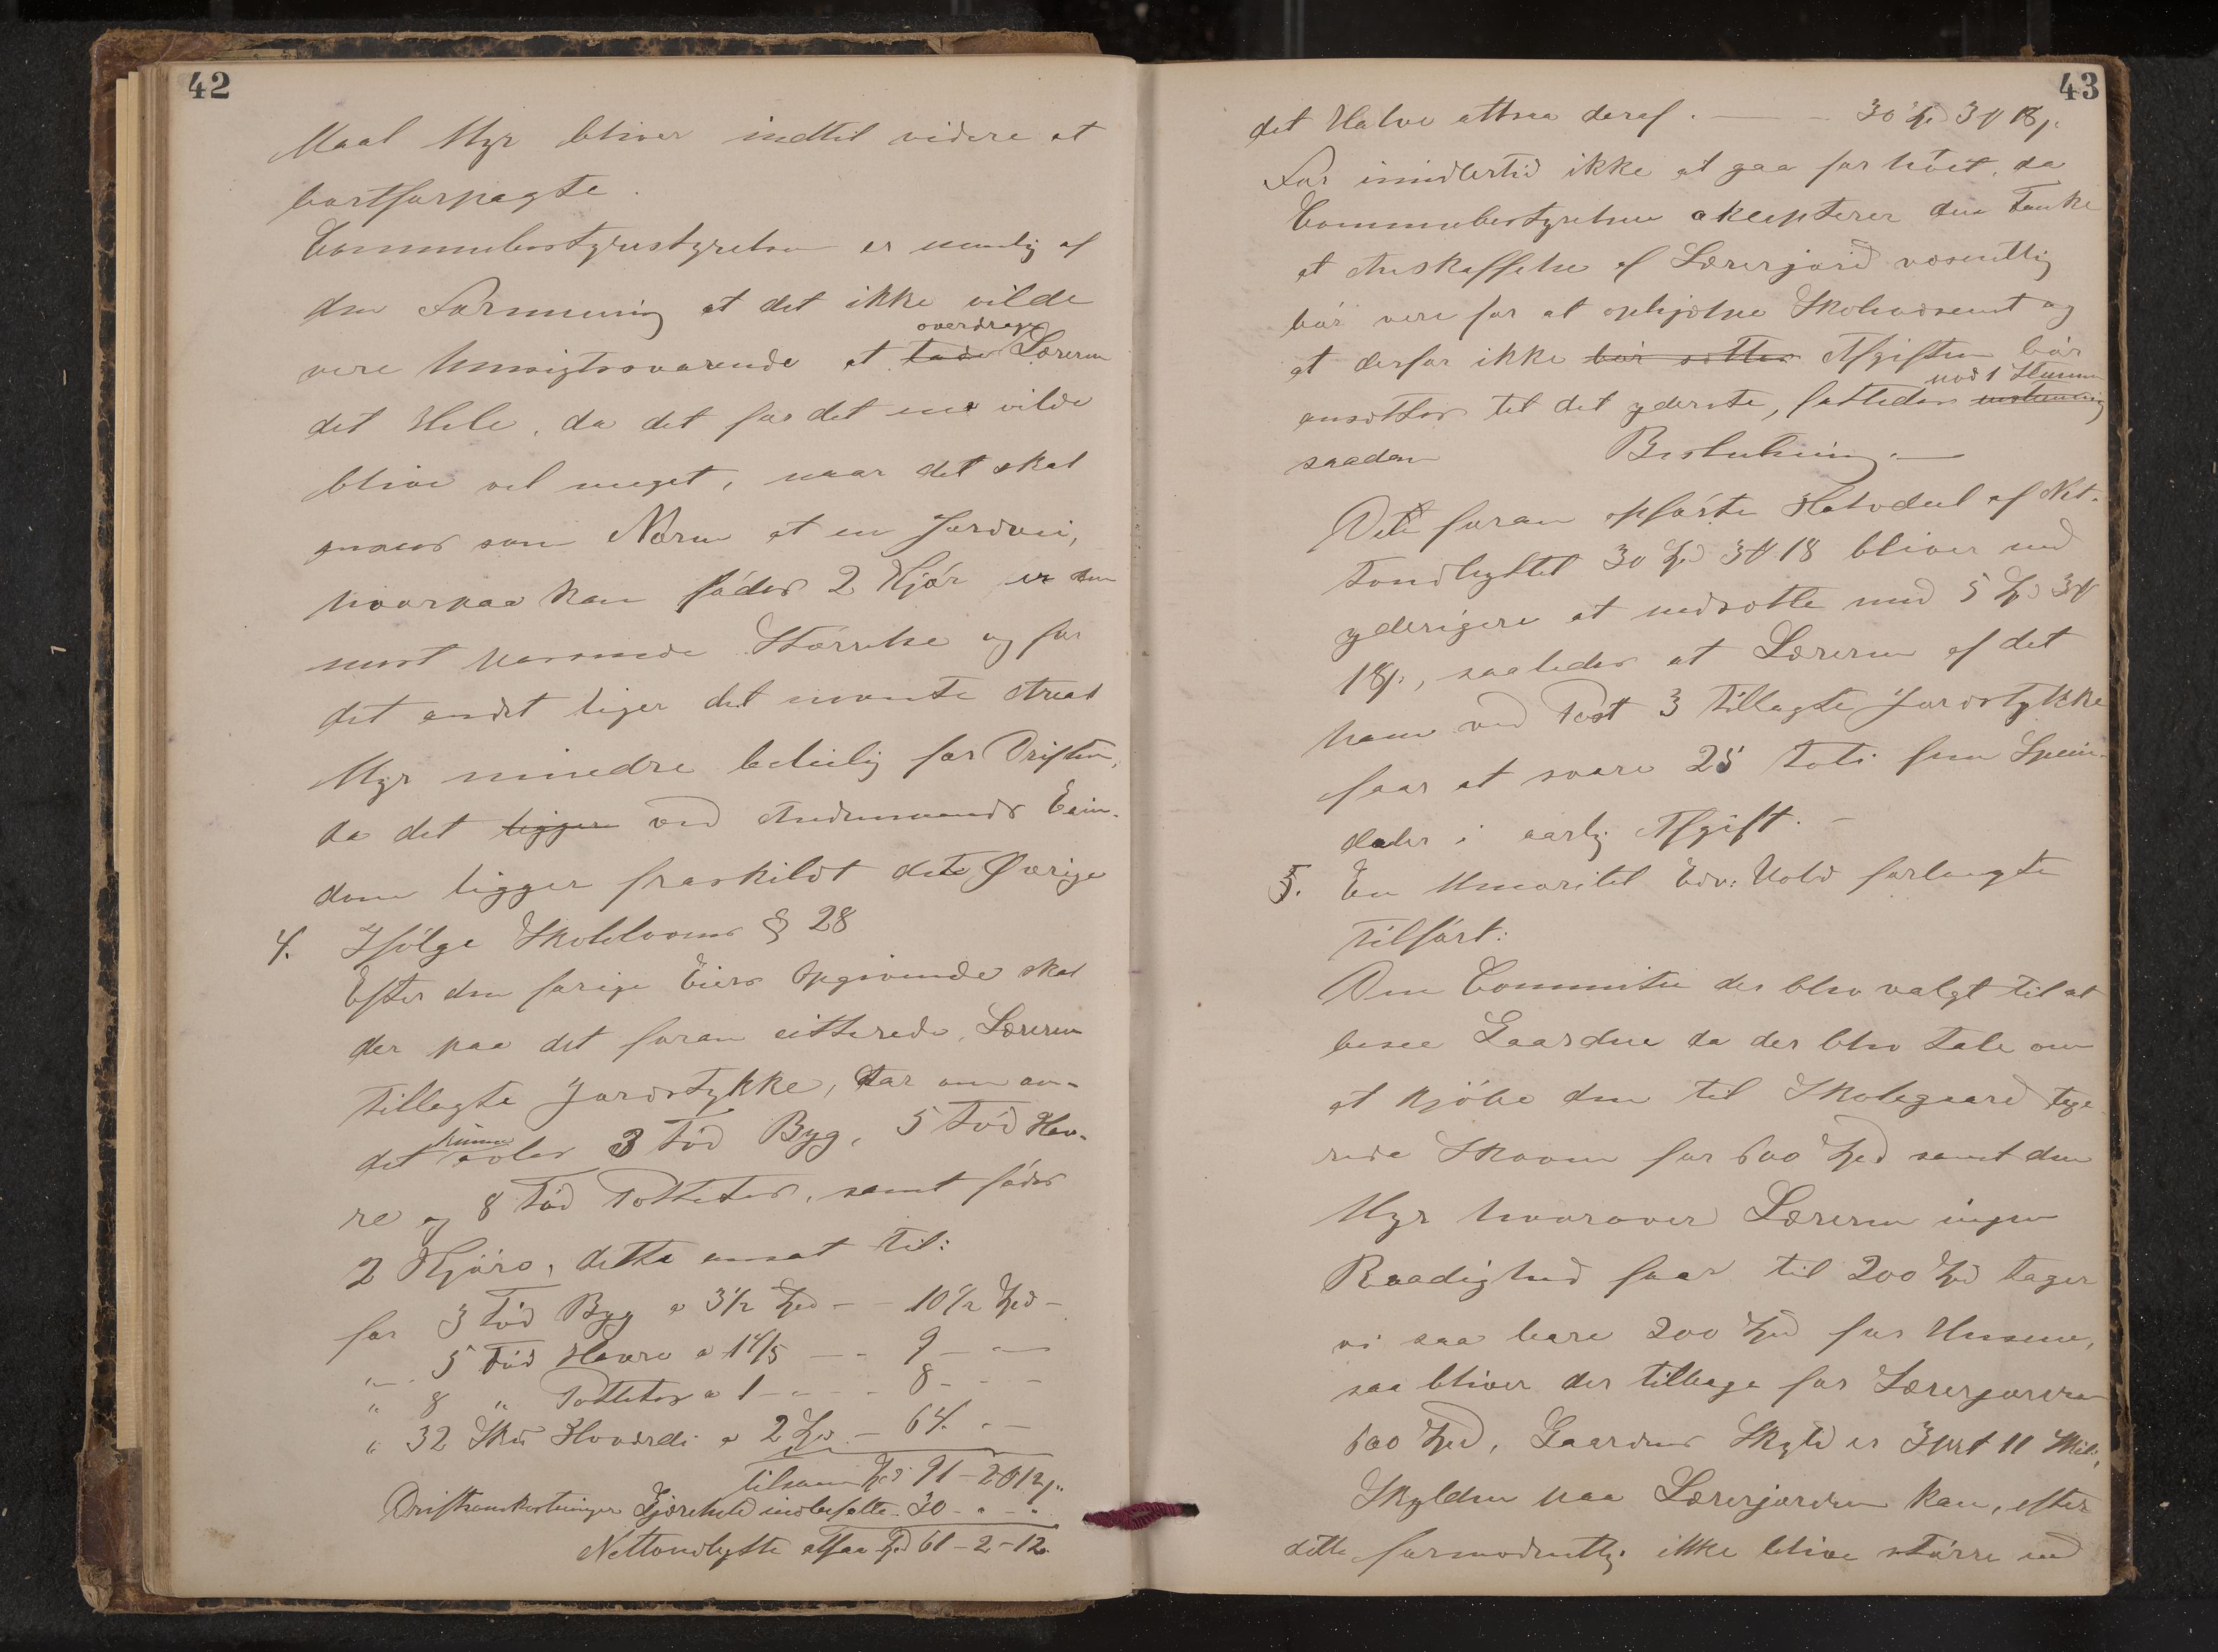 42
Maal Myr bliver indtil videre at
bortforpagte.
Communebestyrestyrelsen er nemlig af
den Formening at det ikke vilde
overdrage
vere hensigtssvarende at lade Læreren
det Hele, da det for det ene vilde
blive vel meget, naar det skal
ansees som Norm at en Jordvei,
hvorpaa kan födes 2 Kjör er den
mest passende Störrelse og for
det andet liger det nevnte Areal
Myr mindre beleilig for Driften,
da det ligger ved Andenmands Eien-
dom ligger fraskildt det Øvrige
4. Ifölge Skolelovens § 28
Efter den forige Eiers Opgivende skal
der paa det foran citterede, Læreren
tillagte Jordstykke, Aar om an-
kunne
det avles 3 Töd Byg, 5 Töd Hav-
re og 8 Töd Potteter, samt födes
2 Kjör, dette ansat til:
for 3 Töd Byg a 3½ Spd - - 10½ Spd -
" 5 Töd Havre a 1 4/5 - - 9 - -
" 8 " Potteter a 1 - - - 8 - - -
" 32 Skü Hovördi a 2 Spd - 64. - -
Tilsam Spd 91 - 2 ȣ 12 β.
Driftsomkostninger Gjærehold indbefatte 30 - " - "
Nettoudbytte altsaa Spd 61 - 2 - 12.
43
det Halve altsaa deraf. — - 30 Spd 3 ȣ 18 β.
For imidlertid ikke at gaa for höit, da
Communebestyrelsen aksepterer den Tanke
at Anskaffelse af Lærerjord væsentlig
bör vere for at ophjælpe Skolevæsenet og
at derfor ikke bör sættes Afgiften bör
mod 1 Stemme
ansættes til det yderste, fattedes enstemmig
saadan Beslutning. —
Det foran opförte Halvdeel af Net-
toudbyttet 30 Spd 3 ȣ 18 bliver end
yderigere at nedsætte med 5 Spd 3 ȣ
18 β., saaledes at Læreren af det
ham ved Post 3 tillagte Jordstykke
faar at svare 25 toti fem Specie-
daler i aarlig Afgift. -
5. En Minoritet Edv: Vold forlangte
tilfört:
Den Committe der blev valgt til at
besee Gaardene da der blev Tale om
at kjöbe den til Skolegaard tage
rede Skoven for 600 Spd samt den
Myr hvorover Læreren ingen
Raadighed faar til 200 Spd tager
vi saa bare 200 Spd for Husene,
saa bliver der tilbage for Lærerjorden
600 Spd, Gaardens Skyld er 3 ort 11 Skil:,
Skylden paa Lærerjorden kan, efter
dette formodentlig ikke blive större end